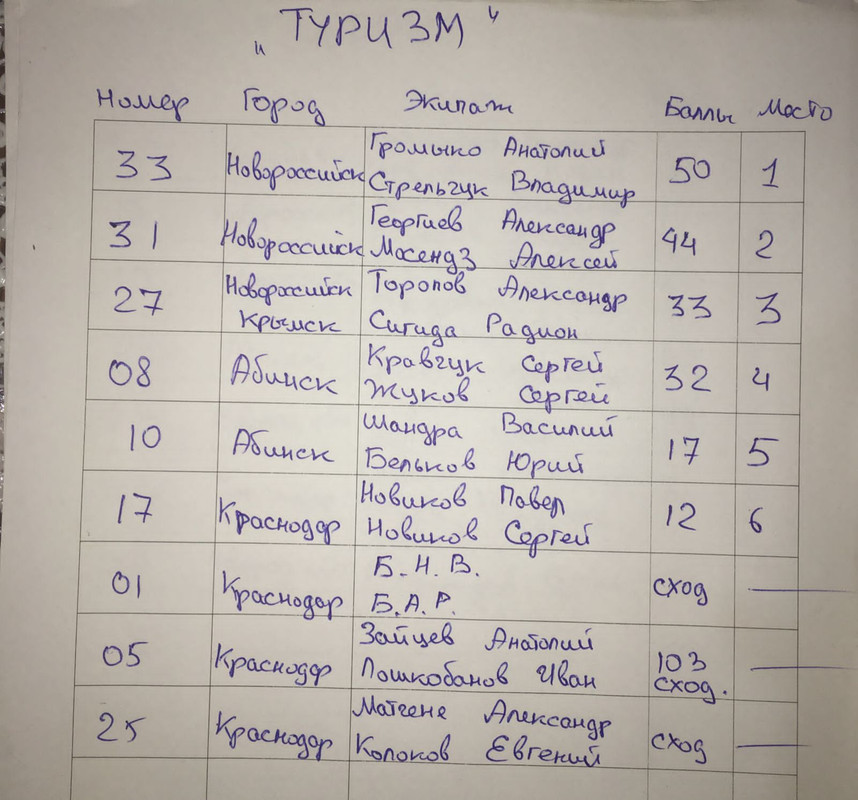 „ТУРИЗМ“
Номер Город Экипаж Баллы Место
33 Новороссийск Громыко Анатолий 50 1
Стрельчук Владимир
31 Новороссийск Георгиев Александр 44 2
Мосендз Алексей
27 Новороссийск Торопов Александр 33 3
Крымск Сигида Радион
08 Абинск Кравчук Сергей 32 4
Жуков Сергей
10 Абинск Шандра Василий 17 5
Бельков Юрий
17 Краснодар Новиков Павел 12 6
Новиков Сергей
01 Краснодар Б.Н.В. сход —
Б.А.Р.
05 Краснодар Зайцев Анатолий 103 —
Лошкобанов Иван сход.
25 Краснодар Матчене Александр сход —
Колоков Евгений